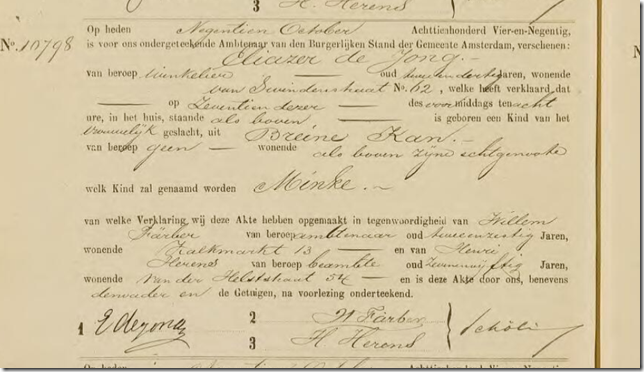 3 H. Herens
Op heden Negentien October Achttienhonderd Vier-en-Negentig,
No. 10798 is voor ons ondergeteekende Ambtenaar van den Burgerlijken Stand der Gemeente Amsterdam, verschenen:
Eliazer de Jong.
van beroep winkelier oud twee en dertig Jaren, wonende
van Swindenstraat No. 62, welke heeft verklaard, dat
op Zeventien dezer des voormiddags ten acht
ure, in het huis, staande als boven is geboren een Kind van het
vrouwelijk geslacht, uit Breine Kan.
van beroep geen wonende als boven zijne echtgenoote
welk Kind zal genaamd worden Minke.
van welke Verklaring, wij deze Akte hebben opgemaakt in tegenwoordigheid van Willem
Färber van beroep ambtenaar oud tweeenzestig Jaren,
wonende Kalkmarkt 13 en van Henri
Herens van beroep beambte oud zevenenvijftig Jaren,
wonende Van der Helststraat 54 en is deze Akte door ons, benevens
den vader en de Getuigen, na voorlezing onderteekend.
1 E de Jong 2 W Färber
3 H Herens
Op heden Achttienhonderd Vier-en-Negentig,